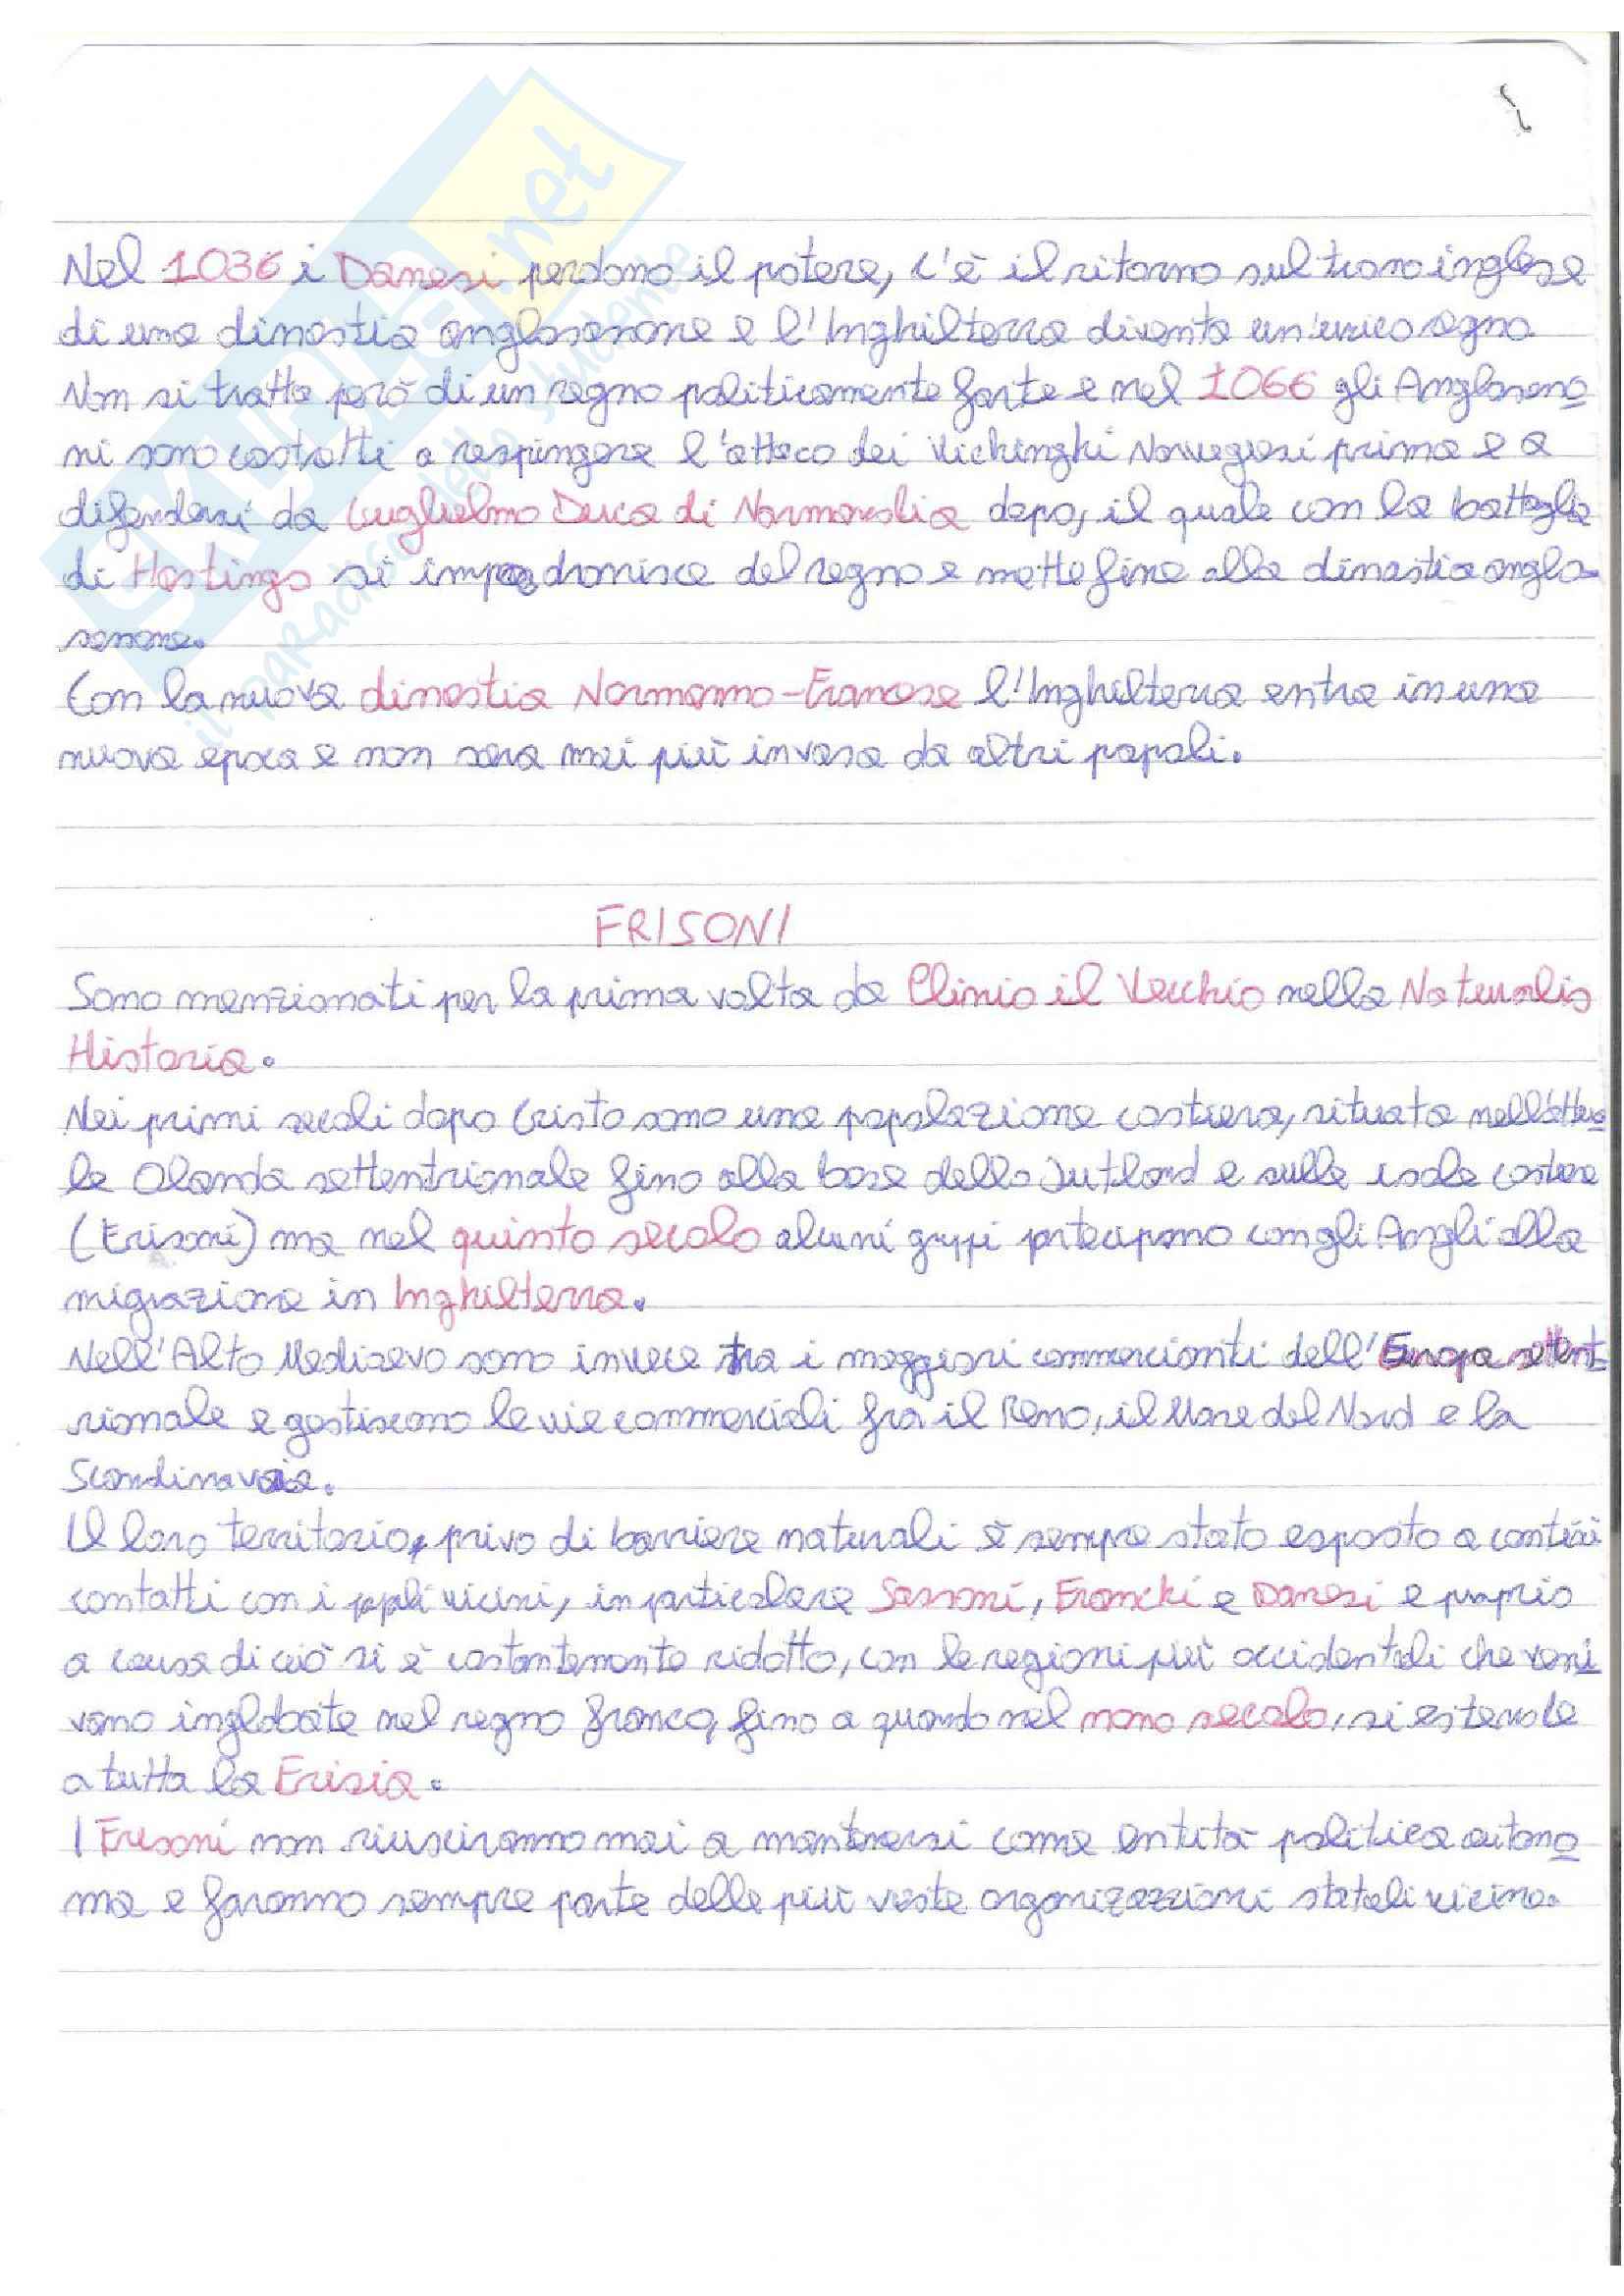 SKUOLA.net
il paradiso dello studente
Nel 1036 i Danesi perdono il potere, c'è il ritorno sul trono inglese
di una dinastia anglosassone e l'Inghilterra diventa un'unico regno
Non si tratta però di un regno politicamente forte e nel 1066 gli Anglasso
ni sono costretti a respingere l'attacco dei Vichinghi Norvegesi prima e a
difendersi da Guglielmo Duca di Normandia dopo, il quale con la battaglia
di Hastings si impadronisce del regno e mette fine alla dinastia anglo-
sassone.
Con la nuova dinastia Normanno-Francese l'Inghilterra entra in una
nuova epoca e non sara mai più invasa da altri popoli.
FRISONI
Sono menzionati per la prima volta da Plinio il Vecchio nella Naturalis
Historia.
Nei primi secoli dopo Cristo sono una popolazione costiera, situata nell'attua
le Olanda settentrionale fino alla base dello Jutland e sulle isole costiere
(Frisoni) ma nel quinto secolo alcuni gruppi partecipano con gli Angli alla
migrazione in Inghilterra.
Nell'Alto Medioevo sono invece tra i maggiori commercianti dell'Europa settent
rionale e gestiscono le vie commerciali fra il Reno, il Mare del Nord e la
Scandinavia.
Il loro territorio, privo di barriere naturali è sempre stato esposto a contini
contatti con i popoli vicini, in particolare Sassoni, Franchi e Danesi e proprio
a causa di ciò si è costantemente ridotto, con le regioni più occidentali che veni
vano inglobate nel regno franco, fino a quando nel nono secolo, si estende
a tutta la Frisia.
I Frisoni non riusciranno mai a mantenersi come entità politica autono
ma e faranno sempre parte delle più vaste organizzazioni statali vicine.